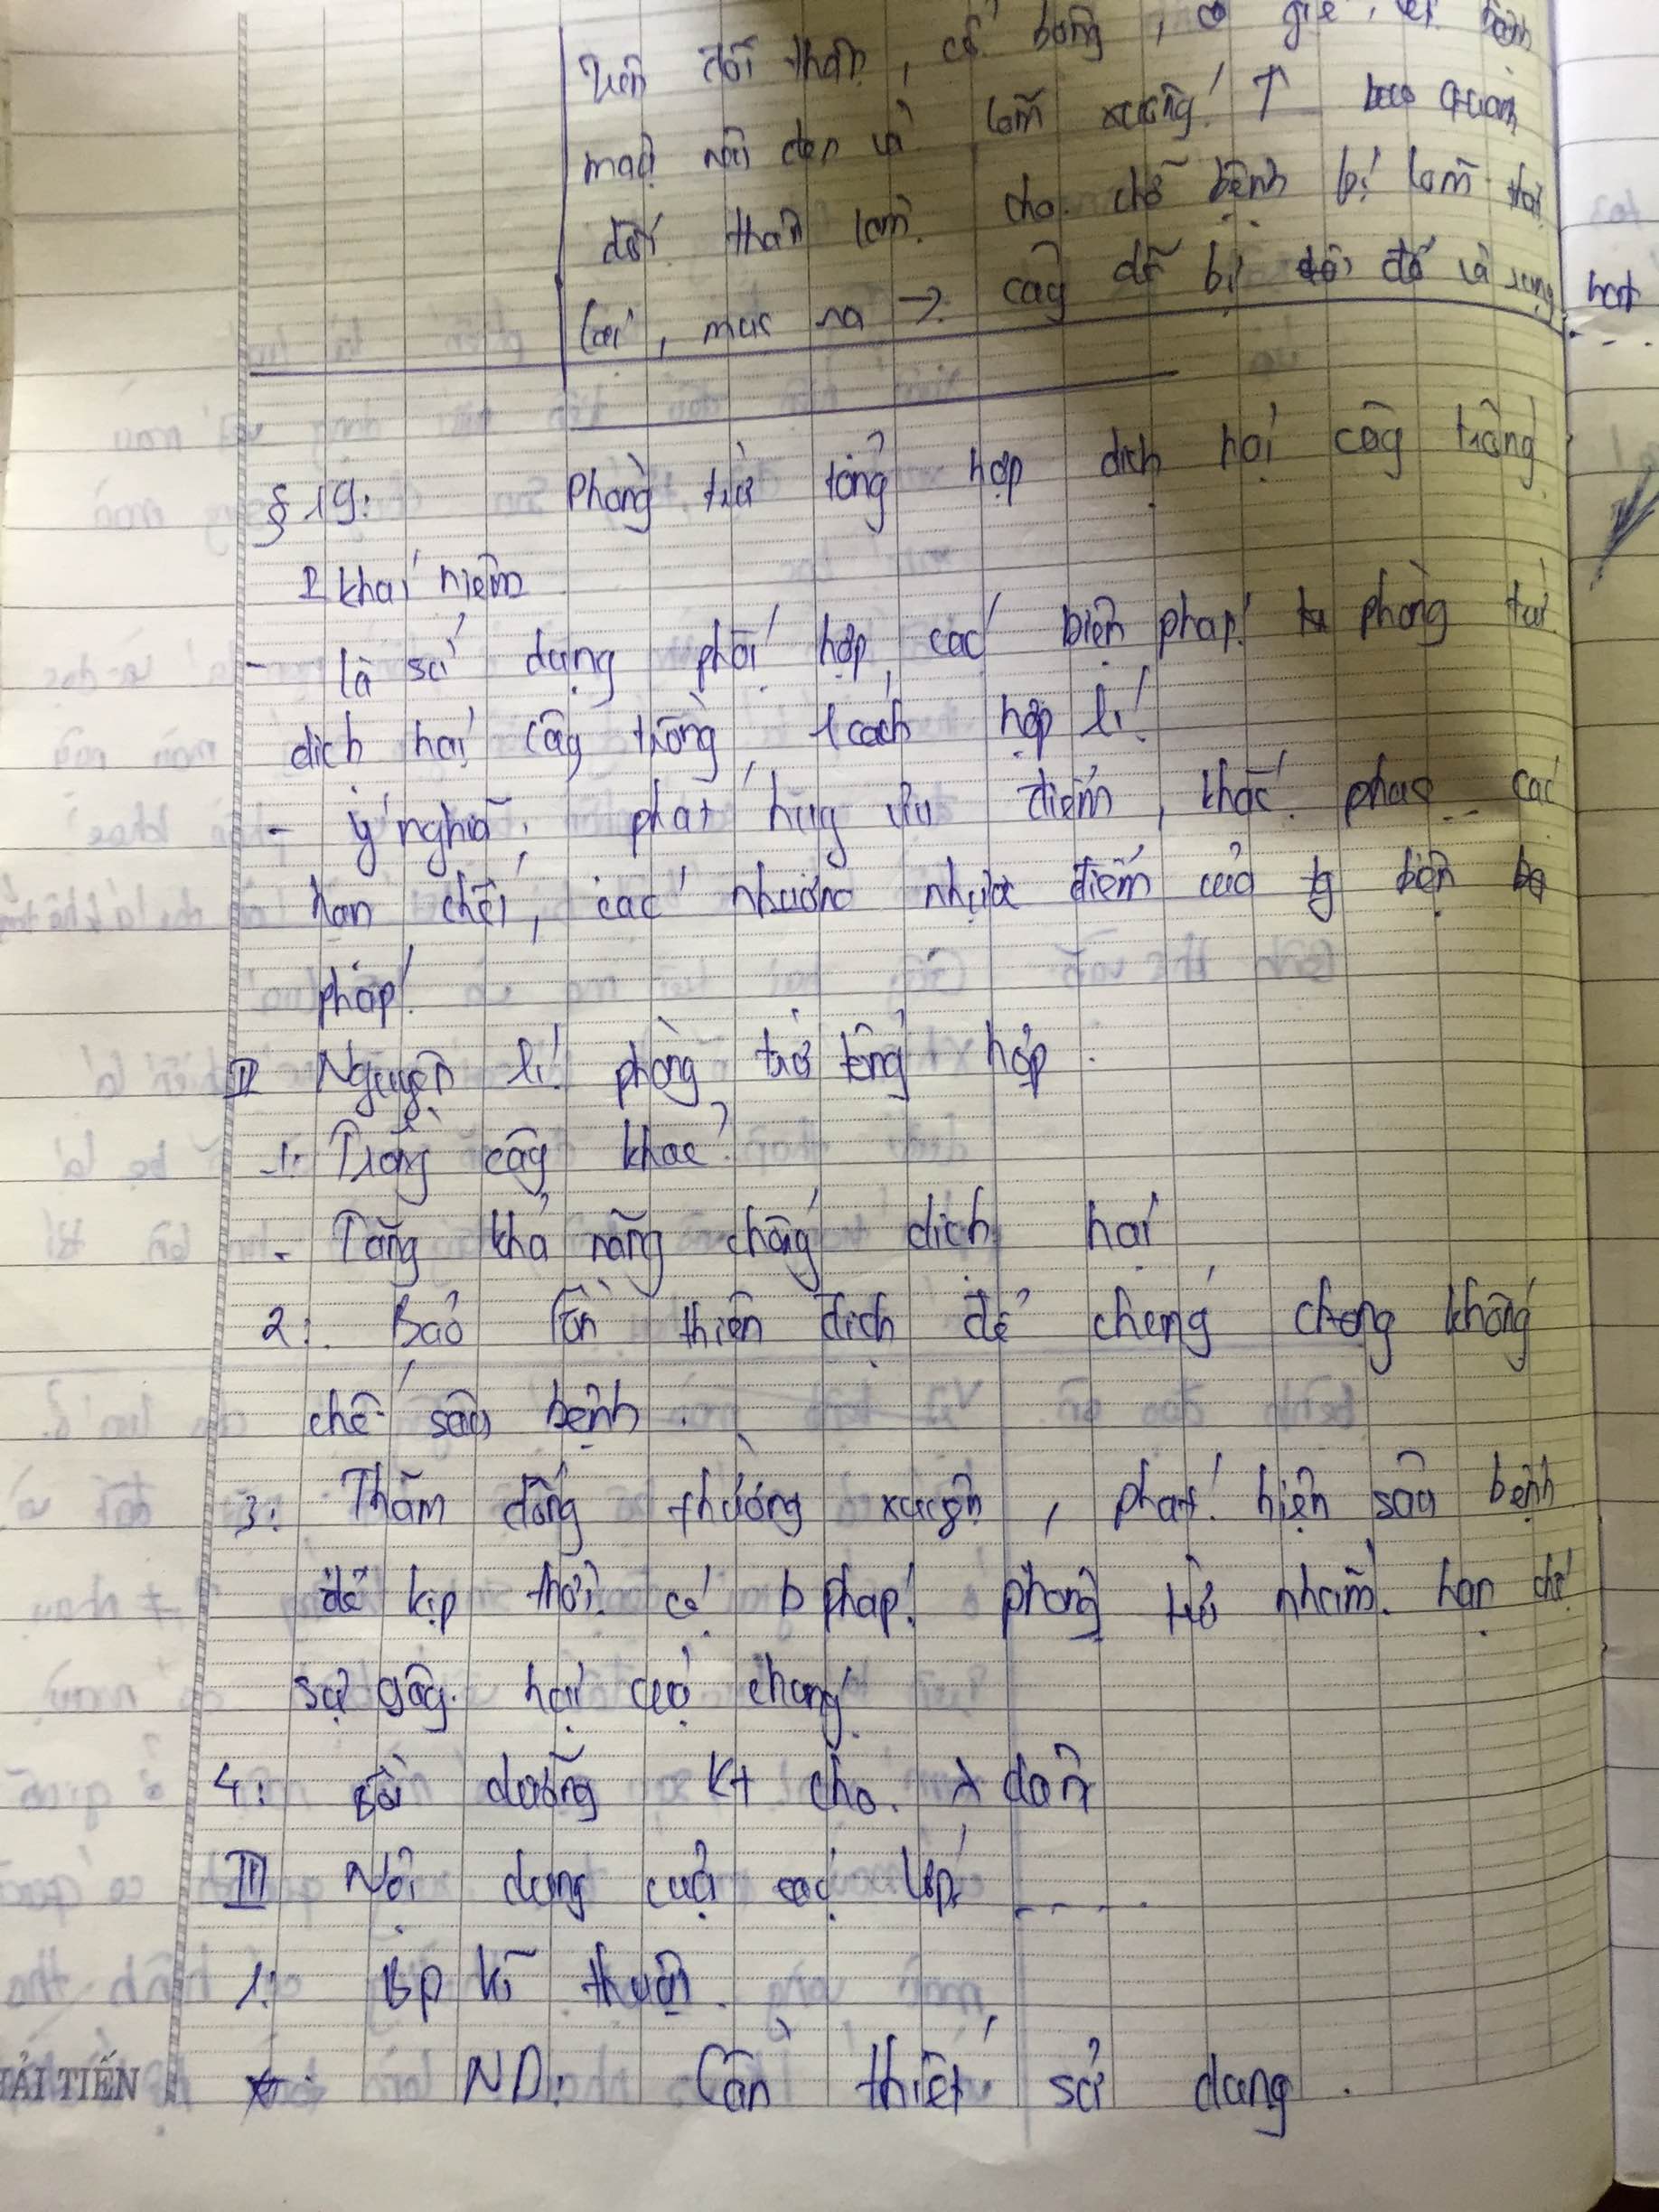 trên đốt thân, cổ bông, gié,
màu nâu đen và lõm xuống ↑ bao quanh
đốt thân làm cho chỗ bệnh bị lõm
lại, mục ra → cây dễ bị đổ và rụng hạt
§ 19: Phòng trừ tổng hợp dịch hại cây trồng
I khái niệm
- là sử dụng phối hợp các biện pháp phòng trừ
dịch hại cây trồng 1 cách hợp lí
- ý nghĩa: phát huy ưu điểm, khắc phục các
hạn chế, các nhược điểm của từng biện
pháp
II Nguyên lí phòng trừ tổng hợp
1: Trồng cây khoẻ
- Tăng khả năng chống dịch hại
2: Bảo tồn thiên địch để chúng khống
chế sâu bệnh.
3: Thăm đồng thường xuyên, phát hiện sâu bệnh
để kịp thời có b pháp phòng trừ nhằm hạn chế
sự gây hại của chúng
4: Bồi dưỡng kt cho dân
III Nội dung của các ....
1: Bp kĩ thuật
* ND: Cần thiết sử dụng.
HẢI TIẾN